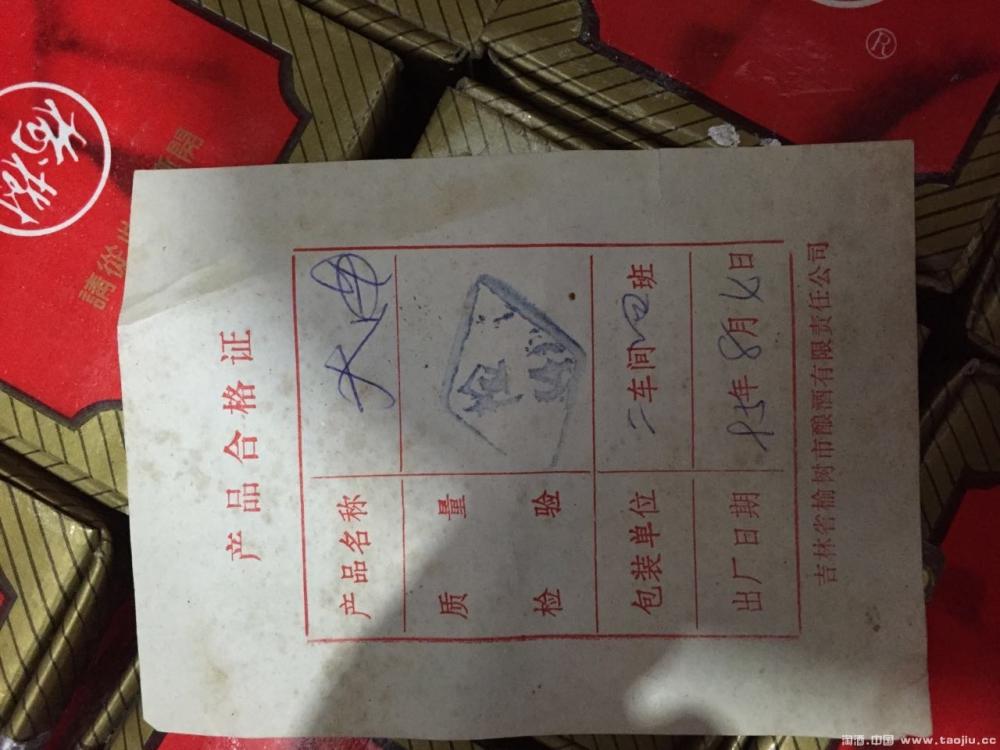 产品合格证
产品名称
质量
检验
包装单位 二车间四班
出厂日期 95年8月7日
吉林省榆树市酿酒有限责任公司
榆树
®
淘酒.中国 www.taojiu.cc